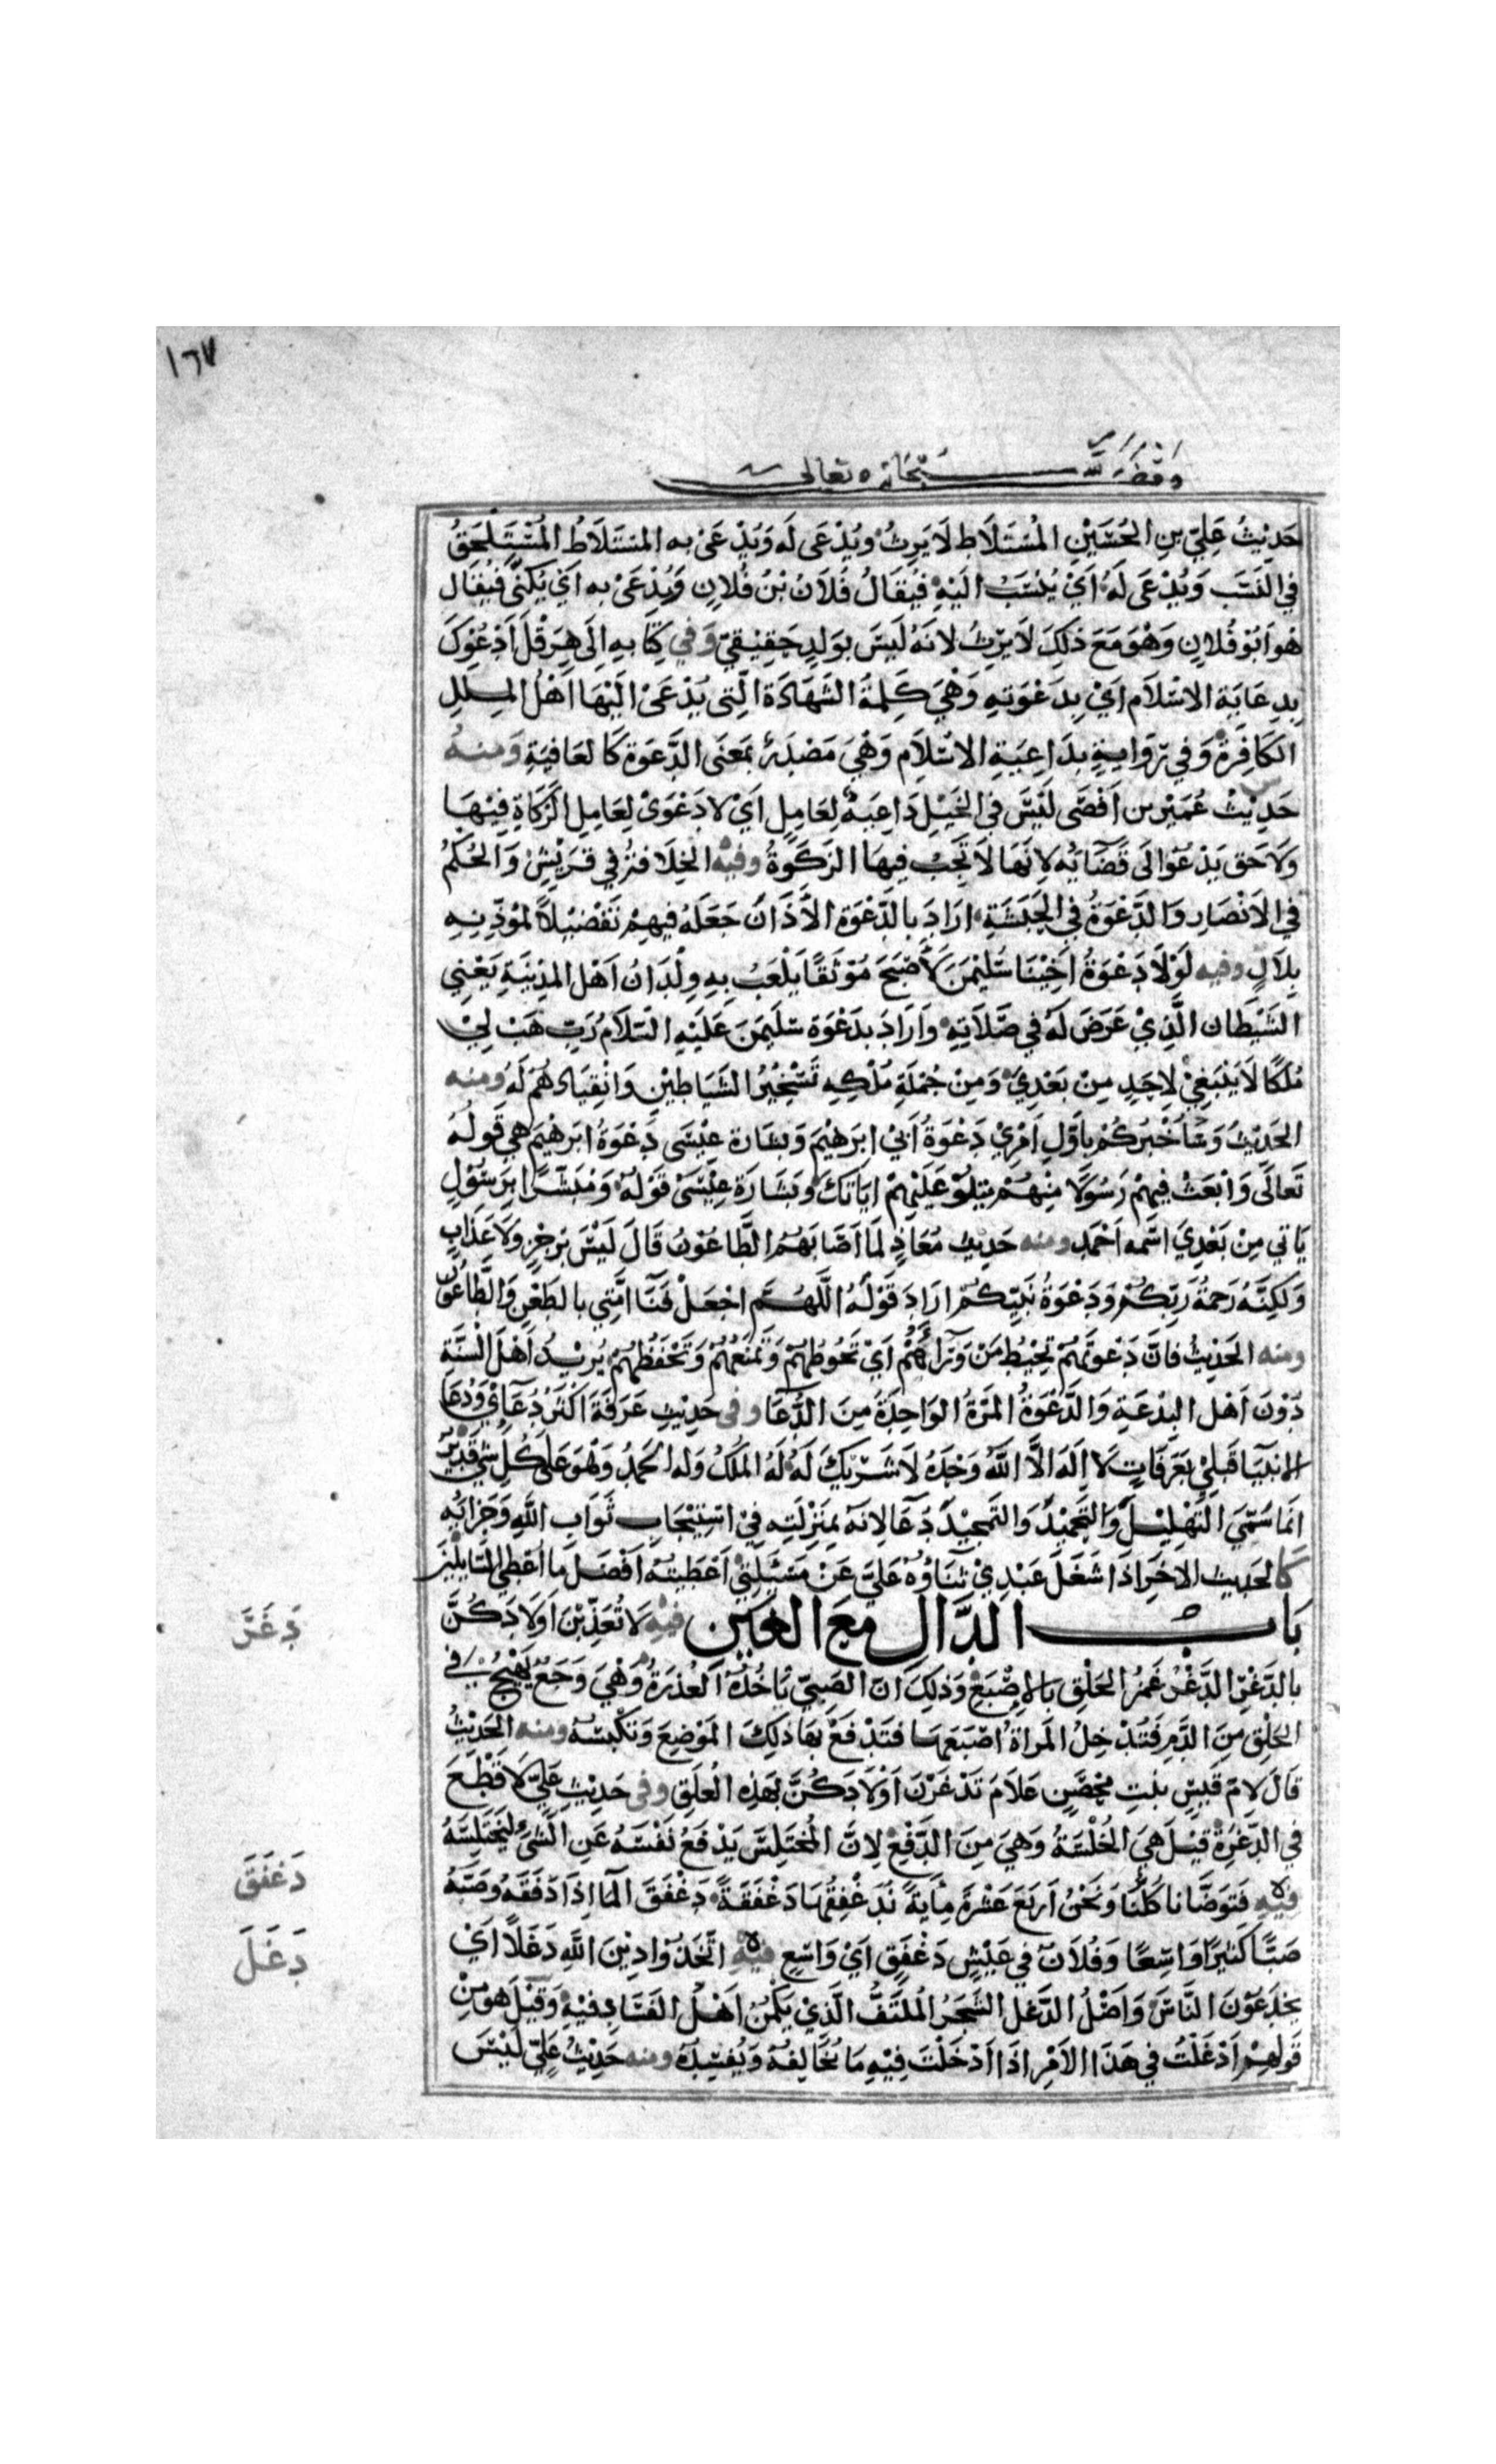 ١٦٧
وقف لله سبحانه وتعالى
حَدِيْثُ عَلِيّ بنِ الحُسَيْنِ المُسْتَلَاطِ لَا يَرِثُ وَيُدْعَى لَه وَيُدْعَىٰ به المسْتَلَاطُ المُسْتَلْحَقُ
فِي النَسَبَ وَيُدْعَى لَهُ اَيْ يُنْسَبُ اليَهِ فيُقَالُ فُلَانُ بْنُ فُلَانٍ وَيُدْعَىْ به اَيْ يُكَنَّى فَيُقَال
هُوَ اَبُوْ فُلانٍ وَهْوَ مَعَ ذلِكَ لَا يَرِثُ لانَهُ لَيسَ بوَلدٍ حَقِيْقيّ وَفي كِتَابهِ اِلَى هِرَقْلَ اَدْعُوْكَ
بِدِعَايَةِ الاسْلَام اَيْ بِدَعْوَتهِ وَهْيَ كَلِمَةُ الشَهَادَة الَّتِى يُدْعَىْ اليَهَا اَهْلُ المِلَلِ
الكَافِرَة وَفي رِوَايةٍ بدَاعِيَةِ الاسْلَام وَهْيَ مَصْدَرٌ بمَعنَى الدَّعوَة كالعَافيَةِ وَمنهُ
حَدِيْثُ عُمَيْر بن اَفْصَى لَيْسَ في الخَيْلِ دَاعِيَةٌ لِعَامِلٍ اَيْ لا دَعْوَىْ لِعَامِلِ الزَكَاةِ فِيْهَا
وَلَا حَق يَدْعُوْ الى قَضَائِه لاِنَهَا لَا تَجِبُ فيهَا الزَكَوٰةُ وفيْه الخِلَافةُ في قرَيْشٍ وَالحُكْمُ
في الاَنْصَارِ وَالدَّعْوَةُ في الحَبَشَةِ ارَادَ بالدَّعْوَة الأَذَانَ جَعَلَهُ فيهِمْ تَفْضِيْلًا لمُؤذِّنِهِ
بِلَالٍ وفيه لَوْلَا دَعْوَةُ اَخِيْنَا سُلَيْمٰنَ لَأَصْبَحَ مُوْثَقًا يَلْعَبُ بِهِ وِلْدَانُ اَهْل المدِيْنَةِ يَعْنِي
الشَيْطان الَّذِيْ عَرَضَ لَهُ في صَلَاتِهِ وَارَادَ بدَعْوَة سلَيمٰنَ عَلَيْهِ السَلَامُ رَبِّ هَبْ لِيْ
مُلكًا لَا يَنْبَغِيْ لِاحَدٍ مِنْ بَعْدِيْ وَمِنْ جُمْلَةِ مُلْكِهِ تَسْخِيْرُ الشَيَاطِيْنِ وَانْقِيَادُهُمْ لَهُ ومنه
الحَدِيْثُ وَسَاُخْبرُكُمْ باَوَّلِ اَمْرِيْ دَعْوَةُ اَبِيْ ابرَهِيْمَ وَبشَارة عِيْسَى دَعْوَةُ ابرَهيْمَ هِي قَولُهُ
تَعَالَى وَابْعَثْ فِيهمْ رَسُوْلًا مِنْهُمْ يتلُوْ عَلَيْهِمْ ايَاتكَ وبَشَارَةُ عِيْسَىْ قَوْلُهُ وَمُبَشِّرًا بِرَسُوْلٍ
يَاْتي مِنْ بَعْدِيْ اسْمُه اَحْمَد ومنه حَدِيْث مُعَاذٍ لمَا اَصَابَهُمُ الطَّاعُوْنُ قَالَ لَيْسَ برِجْزٍ وَلَا عَذَابٍ
وَلكِنَّهُ رَحمَةُ رَبّكُمْ وَدَعْوَةُ نَبيِّكُم ارَادَ قَوْلَهُ اللَّهُمَّ اجْعَلْ فَنَا امَّتِي بالطَعْنِ وَالطَّاعُوْن
ومنه الحَدِيْثُ فانَّ دَعْوَتَهُمْ تحِيْطُ مَنْ وَرَاءَهُمْ اَيْ تَحُوطُهُمْ وَتَمنَعُهُمْ وَتَحْفَظُهُمْ يُرِيْدُ اَهْلَ السُّنَّةِ
دُوْنَ اَهْل البِدْعَةِ وَالدَّعْوَةُ المَرَةُ الوَاحِدَةُ مِنَ الدُّعَا وفى حَدِيْثِ عَرَفَةَ اَكثَرُ دُعَائِي وَدُعَا
الانبيَا قَبلِيْ بعَرَفَاتٍ لَا اِلَهَ الَّا اللَّهُ وَحدَهُ لَا شَرِيْكَ لَهُ لَهُ المُلكُ وَله الحَمدُ وَهْوَ عَلَى كُلِ شيْ قَدِيْر
انمَا سُمّيَ التَهْلِيْلُ وَالتَحمِيْدُ وَالتَمجِيْدُ دُعَاً لانهَ بمَنزِلَتِهِ فِيْ اسْتِيْجَابِ ثَوَابِ اللَّهِ وَجَزَائِهِ
كَالحَدِيث الاٰخَر اذَا شَغَلَ عَبْدِيْ ثَنَاؤهُ عَلَيَّ عَنْ مَسْئَلَتِيْ اَعْطَيتُه اَفْضَلَ مَا اُعْطِي السَائِلِيْنَ
بَابُ الدَّالِ معَ الغَيْن فيْهِ لَا تُعَذِّبْنَ اَوْلَادَكُنَّ
دَغَرَ
بالدَّغْرِ الدَّغْرُ غَمْزُ الحَلْقِ بالاِصْبَعِ وَذلِكَ انَ الصَبِيّ يَاْخُذُهُ العُذرَةُ وَهْيَ وَجَعٌ يَهِيْجُ في
الحَلْقِ مِنَ الدَّمِ فَتُدْخِلُ المَراَة اصْبَعَهَا فتَدْفَعُ بهَا ذلِكَ المَوْضِعَ وَتَكْبِسُهُ ومنه الحَدِيْثُ
قَالَ لِامّ قَيْسٍ بنْتِ مِحْصَنٍ عَلَامَ تَدْغَرْنَ اَوْلَادَكُنَّ بهَذِه العُلَقِ وفى حَدِيْثِ عَلِيّ لَا قَطْعَ
في الدَّغْرَةِ قيْلَ هِيَ الخُلْسَةُ وَهِيَ مِنَ الدَّفْعِ لِانَّ المُختَلِسَ يَدْفَعُ نَفْسَهُ عَنِ الشَيْء ليَخْتَلِسَهُ
دَغفَقَ
فيْهِ فَتَوَضَّانا كُلُّنَا وَنَحْنُ اَرْبَعَ عَشْرَةَ مِأيَةً نُدَغْفِقُهَا دَغْفَقَةً دَغْفَقَ المَا اذَا دَفَقَهُ وصَبَّهُ
دَغَلَ
صَبًّا كَثِيرًا وَاسِعًا وَفُلَانٌ في عَيْشٍ دَغْفَقٍ اَيْ وَاسِعٍ فيْهِ اتَّخَذُوْا دِيْنَ اللَّهِ دَغَلًا اَيْ
يخدَعُوْنَ النَّاسَ وَاَصْلُ الدَّغَل الشَجَرُ المُلتَفُّ الَّذِيْ يَكْمُنُ اَهْلُ الفَسَاد فيْهِ وَقيْلَ هوَ مِنْ
قَولِهِمْ اَدْغَلْتُ في هَذَا الاَمْرِ اذَا اَدْخَلْتَ فِيْهِ مَا يُخَالِفُهُ وَيُفْسِدُه ومنه حَدِيْثُ عَلِيّ لَيْسَ